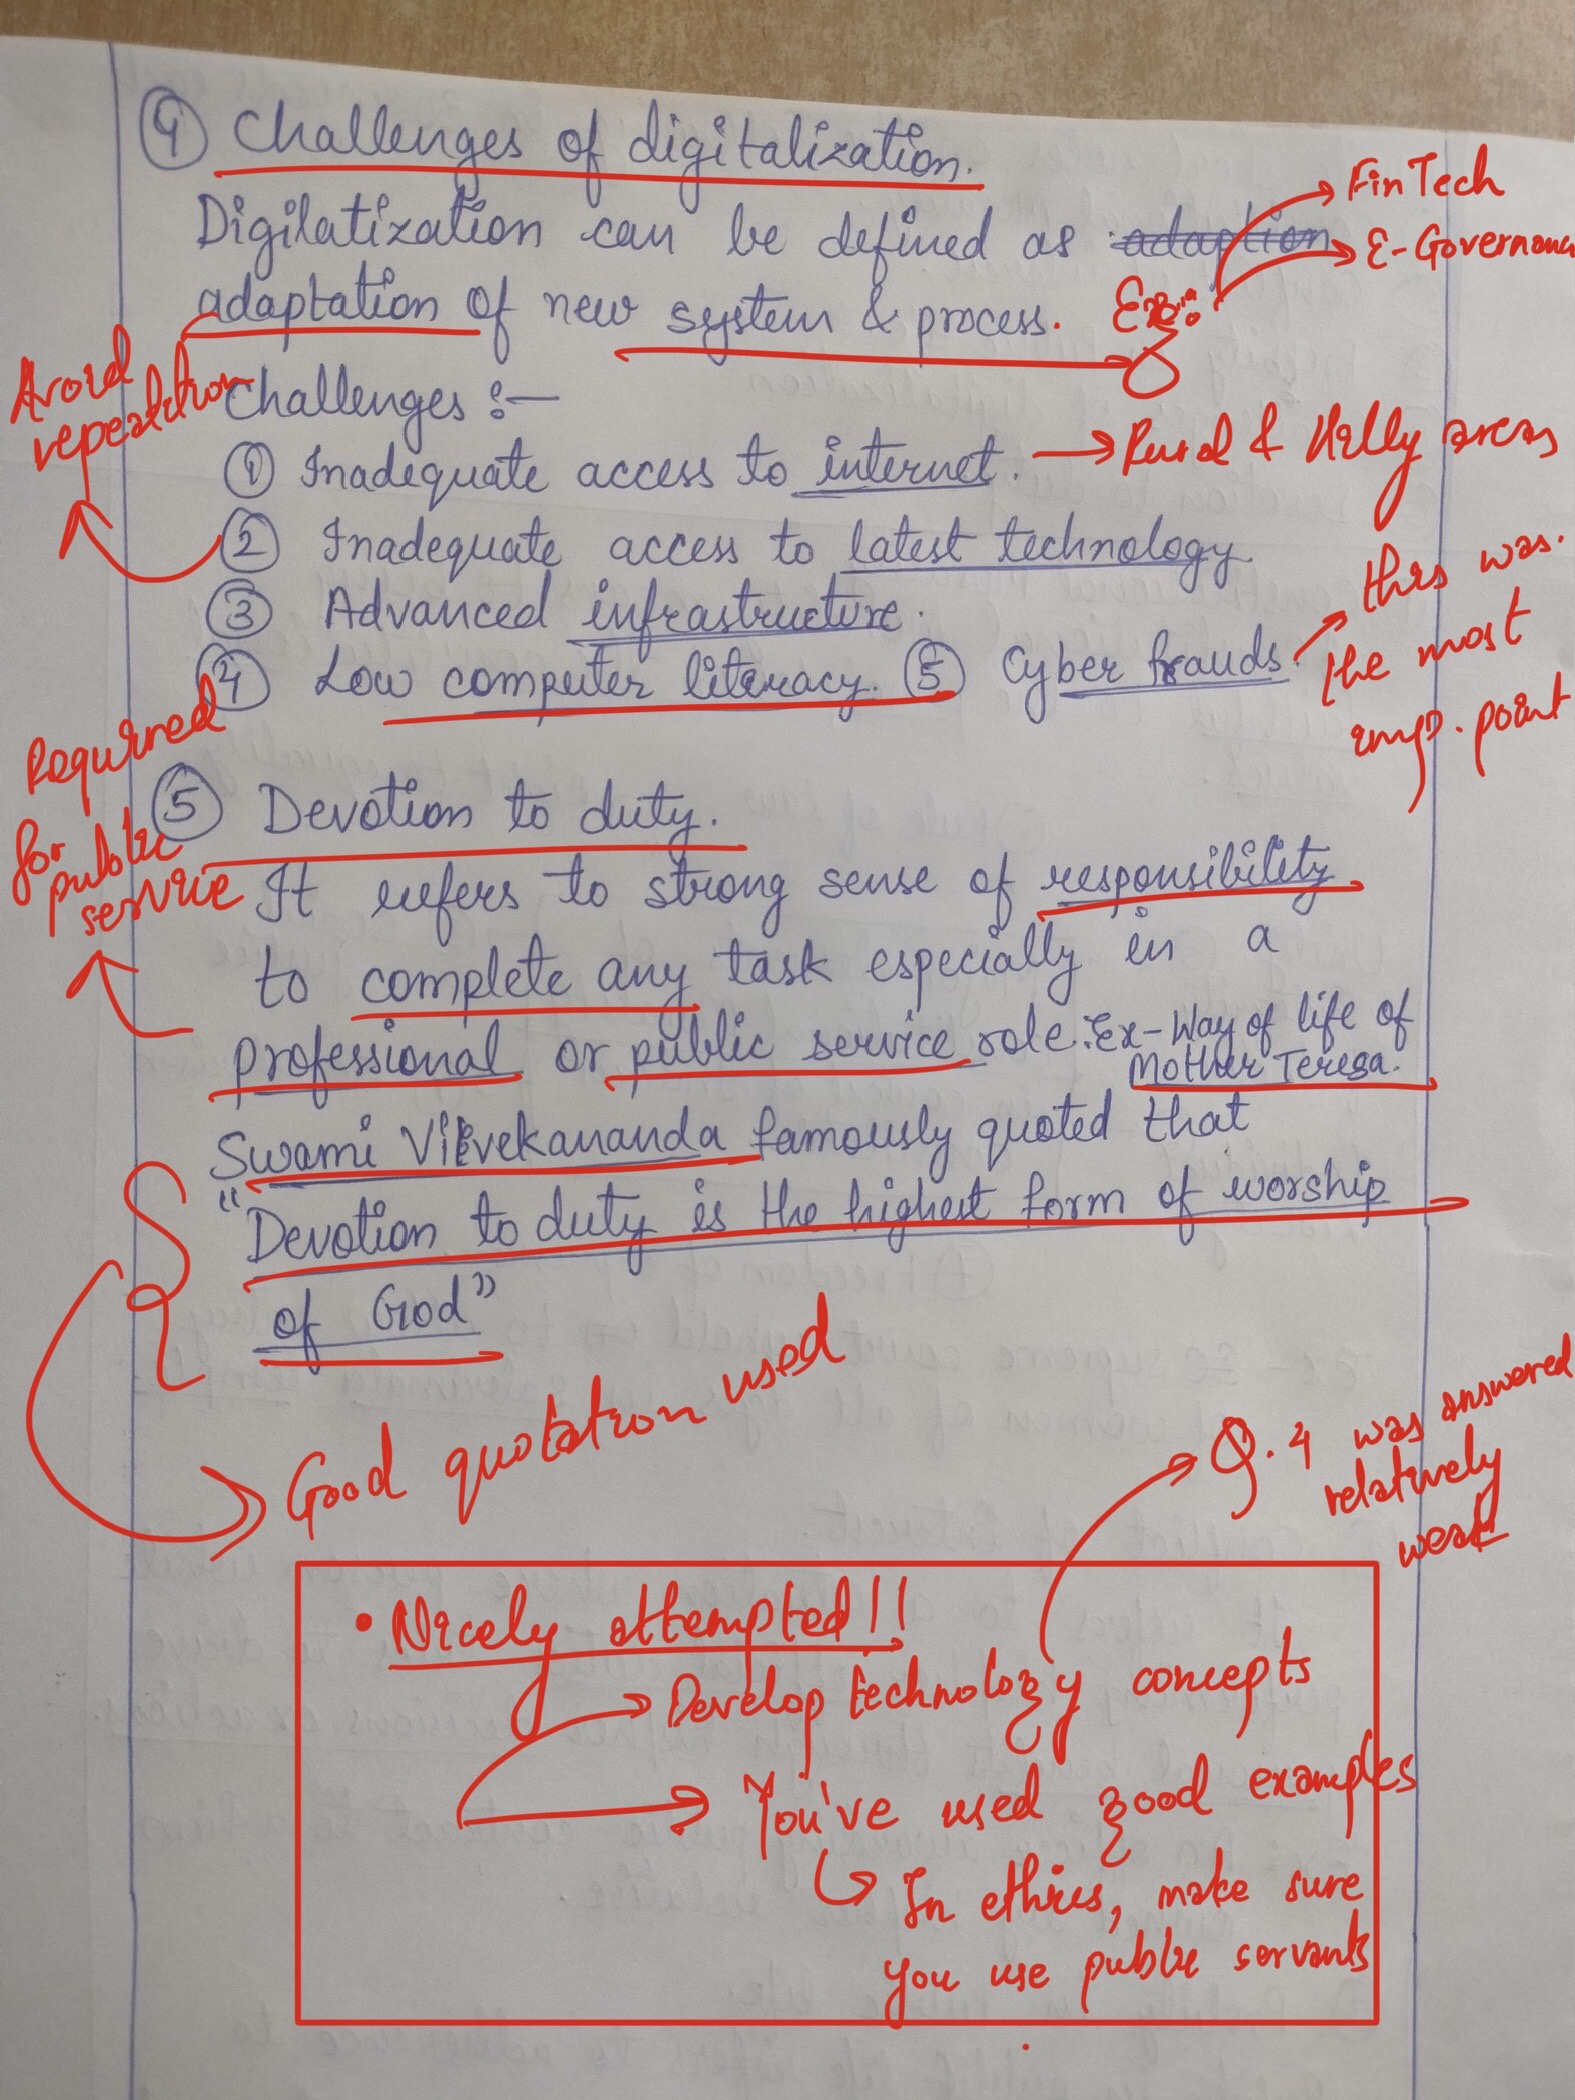 ④ Challenges of digitalization.
→ FinTech
Digilatization can be defined as adaption
→ E-Governance
adaptation of new system & process.
Ex:
Avoid
repeatition
Challenges :—
① Inadequate access to internet. → Rural & Hilly areas
② Inadequate access to latest technology.
③ Advanced infrastructure.
④ Low computer literacy. ⑤ Cyber frauds.
this was
the most
imp. point
Required
for public
service
⑤ Devotion to duty.
It refers to strong sense of responsibility
to complete any task especially in a
professional or public service role. Ex-Way of life of
Mother Teresa.
Swami Vivekananda famously quoted that
"Devotion to duty is the highest form of worship
of God"
Good quotation used
Q.4 was answered
relatively
weak
• Nicely attempted!!
→ Develop technology concepts
→ You've used good examples
↳ In ethics, make sure
you use public servants